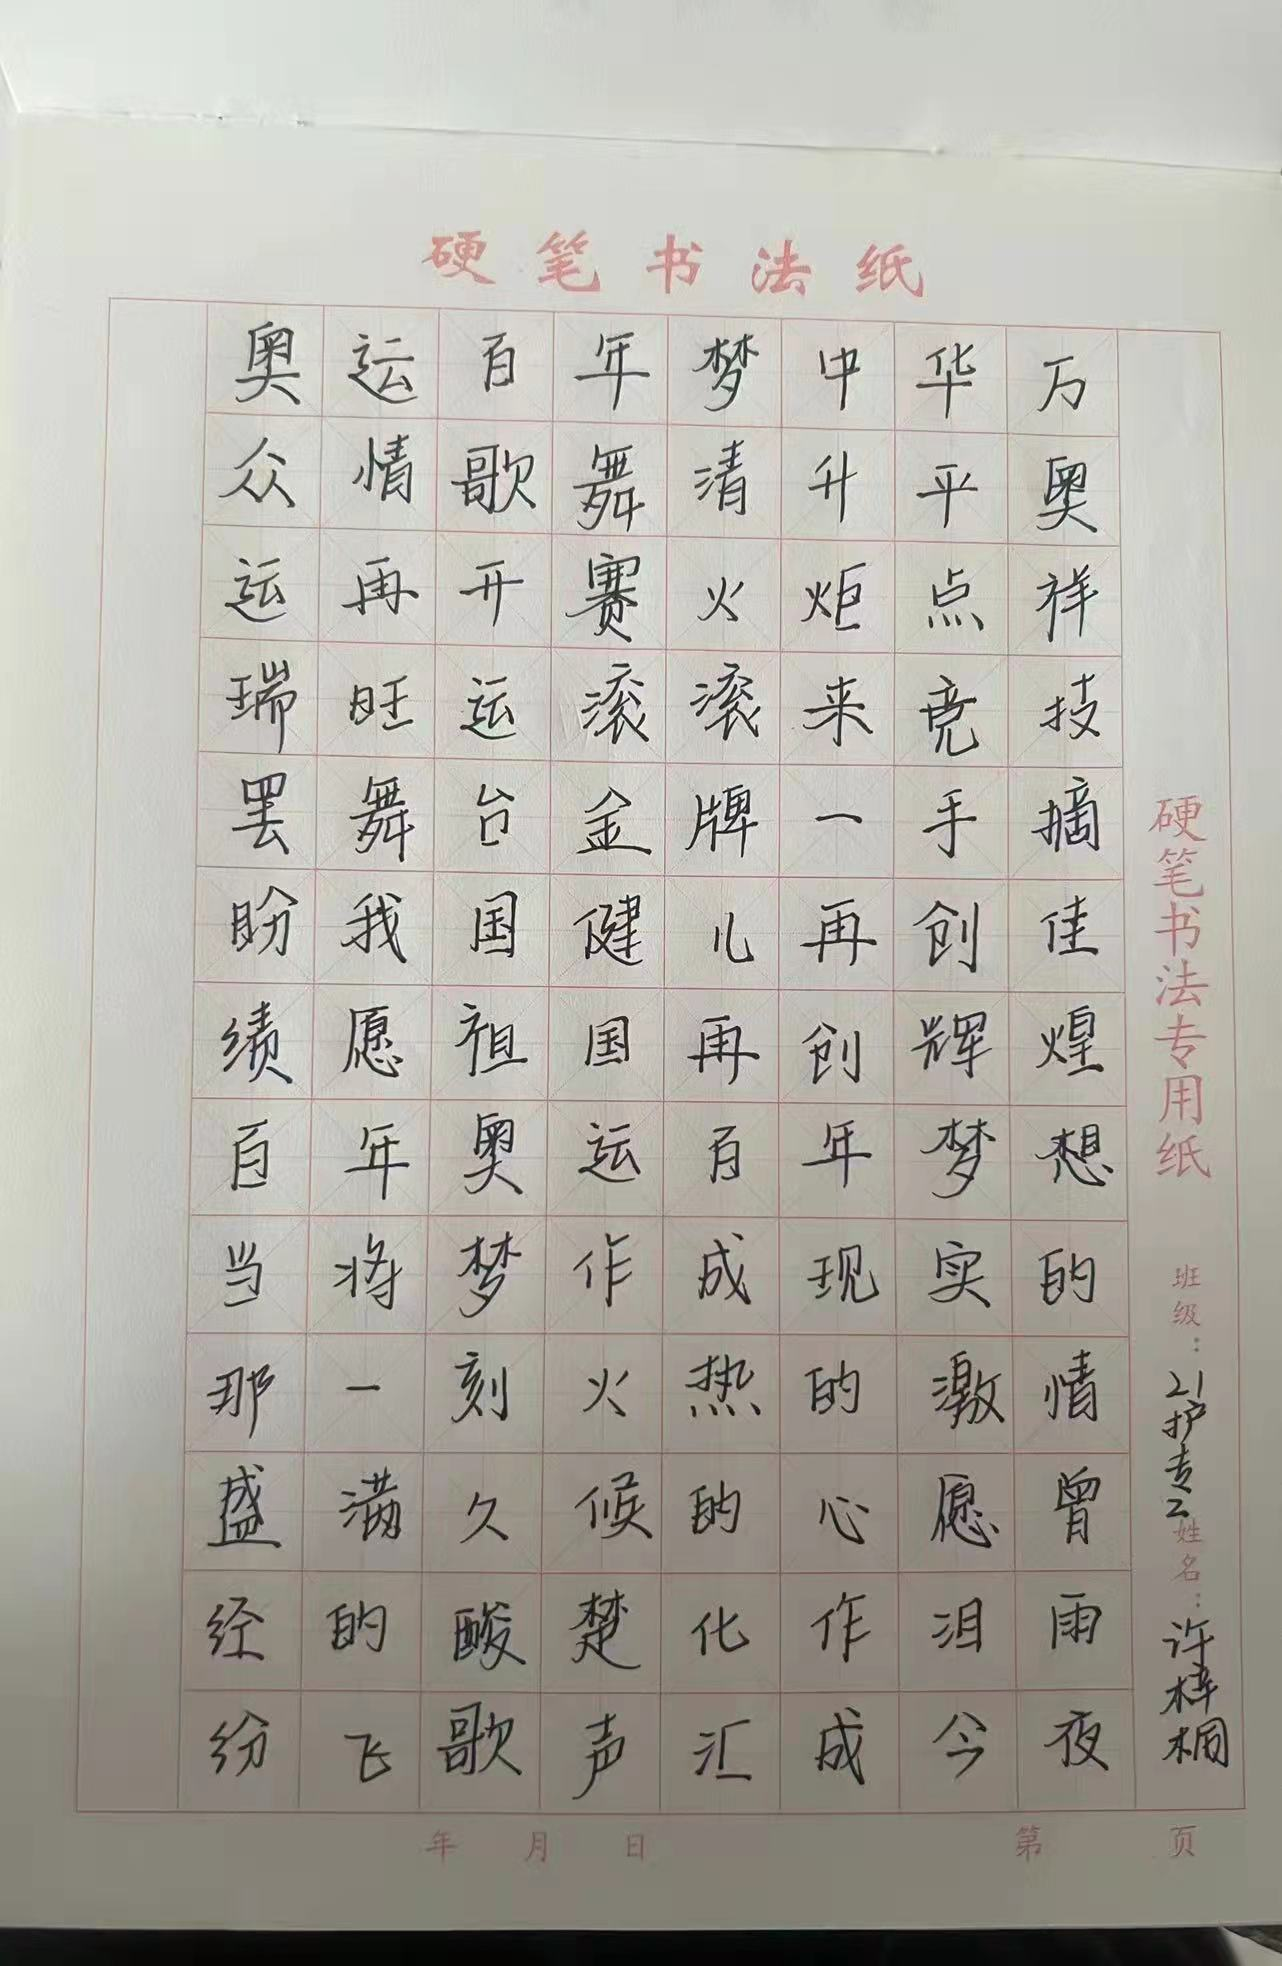 硬笔书法纸
奥运百年梦中华万
众情歌舞清升平奥
运再开赛火炬点祥
瑞旺运滚滚来竞技
罢舞台金牌一手摘
盼我国健儿再创佳
绩愿祖国再创辉煌
百年奥运百年梦想
当将梦作成现实的
那一刻火热的激情
盛满久候的心愿曾
经的酸楚化作泪雨
纷飞歌声汇成今夜
硬笔书法专用纸
班级：21护专2
姓名：许梓桐
年 月 日
第 页